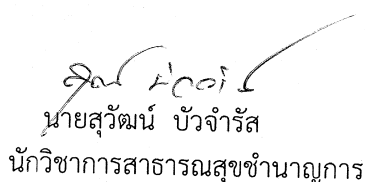 นายสุวัฒน์ บัวจำรัส
นักวิชาการสาธารณสุขชำนาญการ